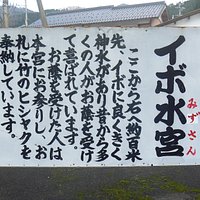 イボ水宮
みずさん
ここから右へ約百米
先、イボに良くきく
神水があり昔から多
くの人がお蔭を受け
て喜ばれています。
お蔭を受けた人は
本宮にお参りし、お
礼に竹のヒシャクを
奉納しています。